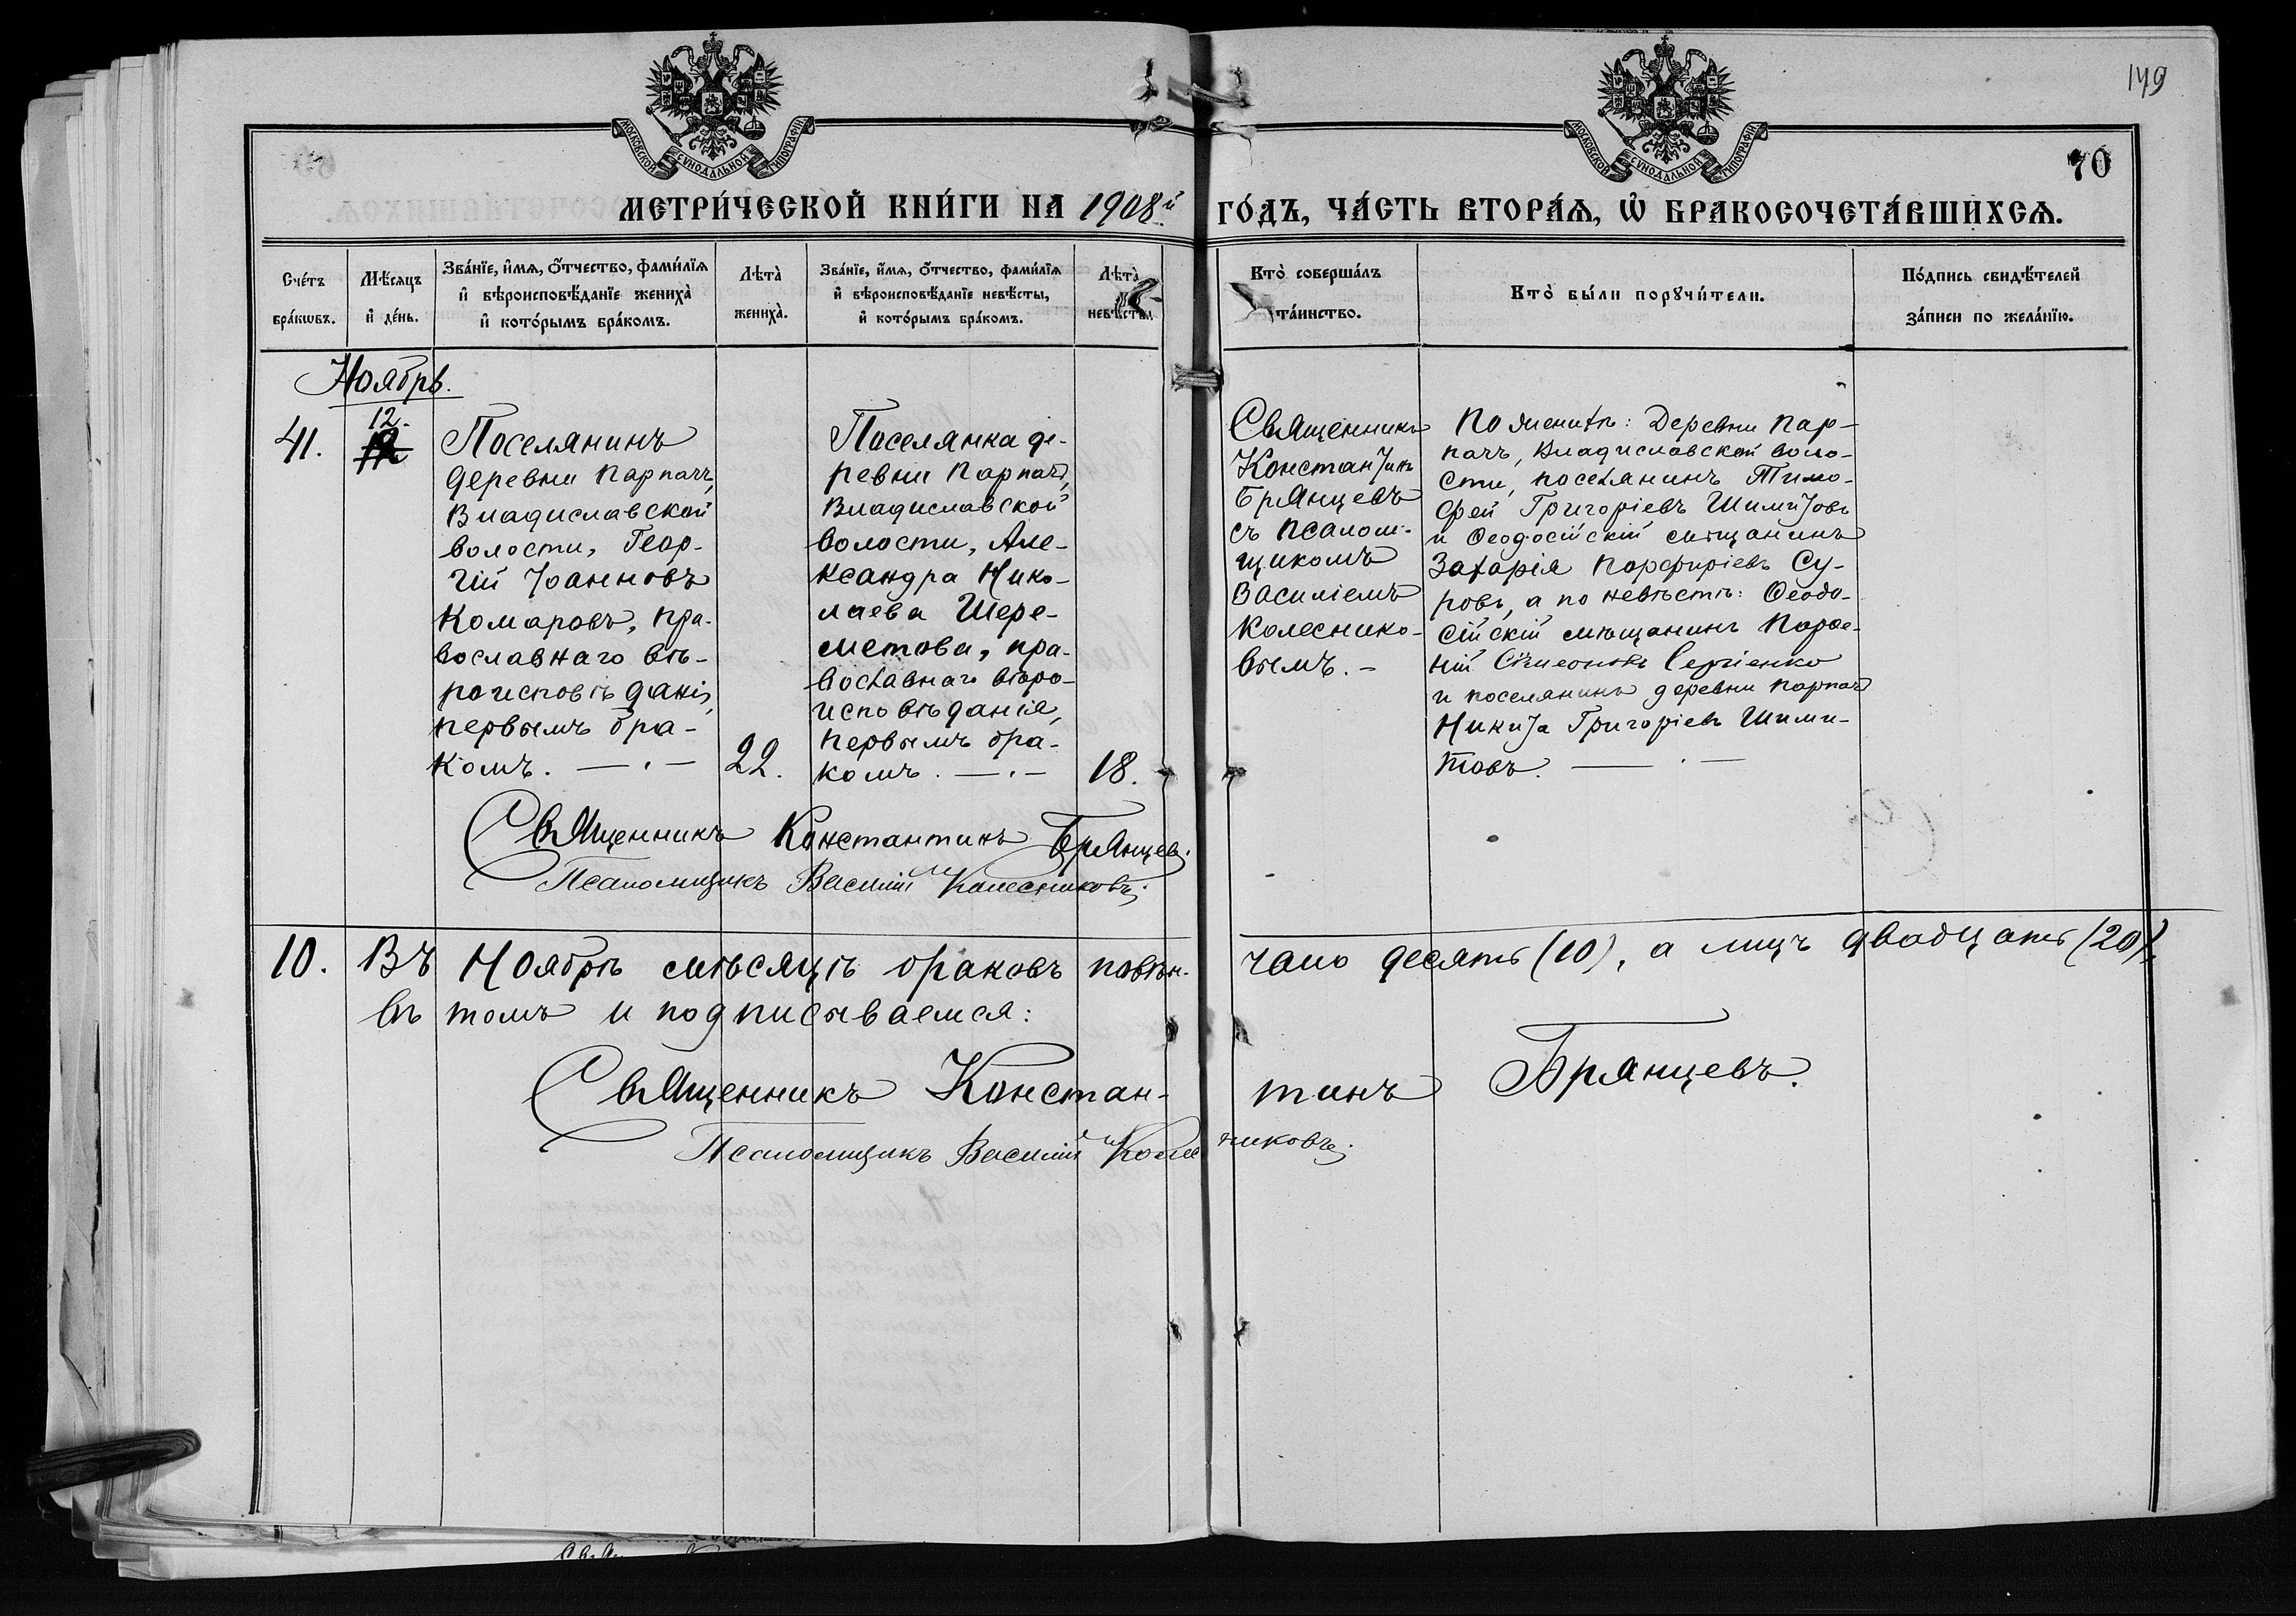 149
МОСКОВСКОЙ СѴНОДАЛЬНОЙ ТИПОГРАФІИ
МОСКОВСКОЙ СѴНОДАЛЬНОЙ ТИПОГРАФІИ
70
МЕТРИ́ЧЕСКОЙ КНИ́ГИ НА 1908.й ГО́ДЪ, ЧА́СТЬ ВТОРА́Ѧ, Ѡ҆ БРАКОСОЧЕТА́ВШИХСѦ.
Сче́тъ
бра́кѡвъ.
Мѣ́сяцъ
и҆ де́нь.
Зва́нїе, и҆́мѧ, ѻ҆́тчество, фами́лїѧ
и҆ вѣроисповѣ́данїе жениха̀
и҆ кото́рымъ бра́комъ.
Лѣта̀
жениха̀.
Зва́нїе, и҆́мѧ, ѻ҆́тчество, фами́лїѧ
и҆ вѣроисповѣ́данїе невѣ́сты,
и҆ кото́рымъ бра́комъ.
Лѣта̀
невѣ́сты.
Кто̀ соверша́лъ
та́инство.
Кто̀ бы́ли порꙋчи́тели.
По́дпись свидѣ́телей
за́писи по жела́нїю.
Ноябрь.
41.
12.
Поселянинъ
деревни Парпачъ,
Владиславской
волости, Геор-
гій Іоанновъ
Комаровъ, пра-
вославнаго вѣ-
роисповѣданія,
первымъ бра-
комъ. — . —
22.
Поселянка де-
ревни Парпачъ,
Владиславской
волости, Але-
ксандра Нико-
лаева Шере-
метова, пра-
вославнаго вѣро-
исповѣданія,
первымъ бра-
комъ. — . —
18.
Священникъ
Константинъ
Брянцевъ
съ псалом-
щикомъ
Василіемъ
Колеснико-
вымъ. —
По женихѣ: Деревни Пар-
пачъ, Владиславской воло-
сти, поселянинъ Тимо-
фей Григоріевъ Шимитовъ
и Ѳеодосійскій мѣщанинъ
Захарія Порфиріевъ Су-
ровъ, а по невѣстѣ: Ѳеодо-
сійскій мѣщанинъ Парѳе-
ній Сѵмеоновъ Сергіенко
и поселянинъ деревни Парпачъ
Никита Григоріевъ Шими-
товъ. — . —
Священникъ Константинъ Брянцевъ.
Псаломщикъ Василій Колесниковъ.
10. Въ Ноябрѣ мѣсяцѣ браковъ повѣн-чано десять (10), а лицъ двадцать (20),
въ томъ и подписываемся:
Священникъ Констан-тинъ Брянцевъ.
Псаломщикъ Василій Колесниковъ.